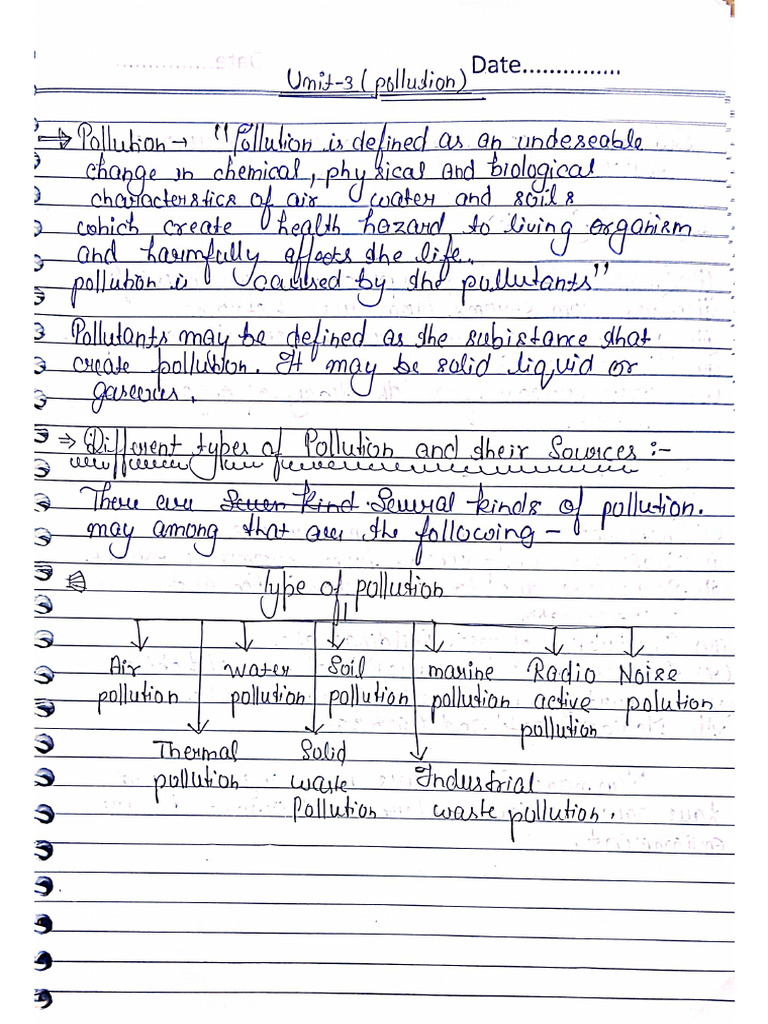 Date...............
Unit-3 (pollution)
⇒ Pollution → "Pollution is defined as an undeseable
change in chemical, physical and biological
characteristics of air water and soils
which create health hazard, to living organism
and harmfully affects the life.
pollution is caused by the pollutants"
Pollutants may be defined as the subistance that
create pollution. It may be solid liquid or
gaseous.
⇒ Different types of Pollution and their Sources :-
There are Seven kind Several kinds of pollution.
may among that are the following -
Type of pollution
Air water Soil marine Radio Noise
pollution pollution pollution pollution active polution
pollution
Thermal Solid
pollution waste Industrial
Pollution waste pollution.